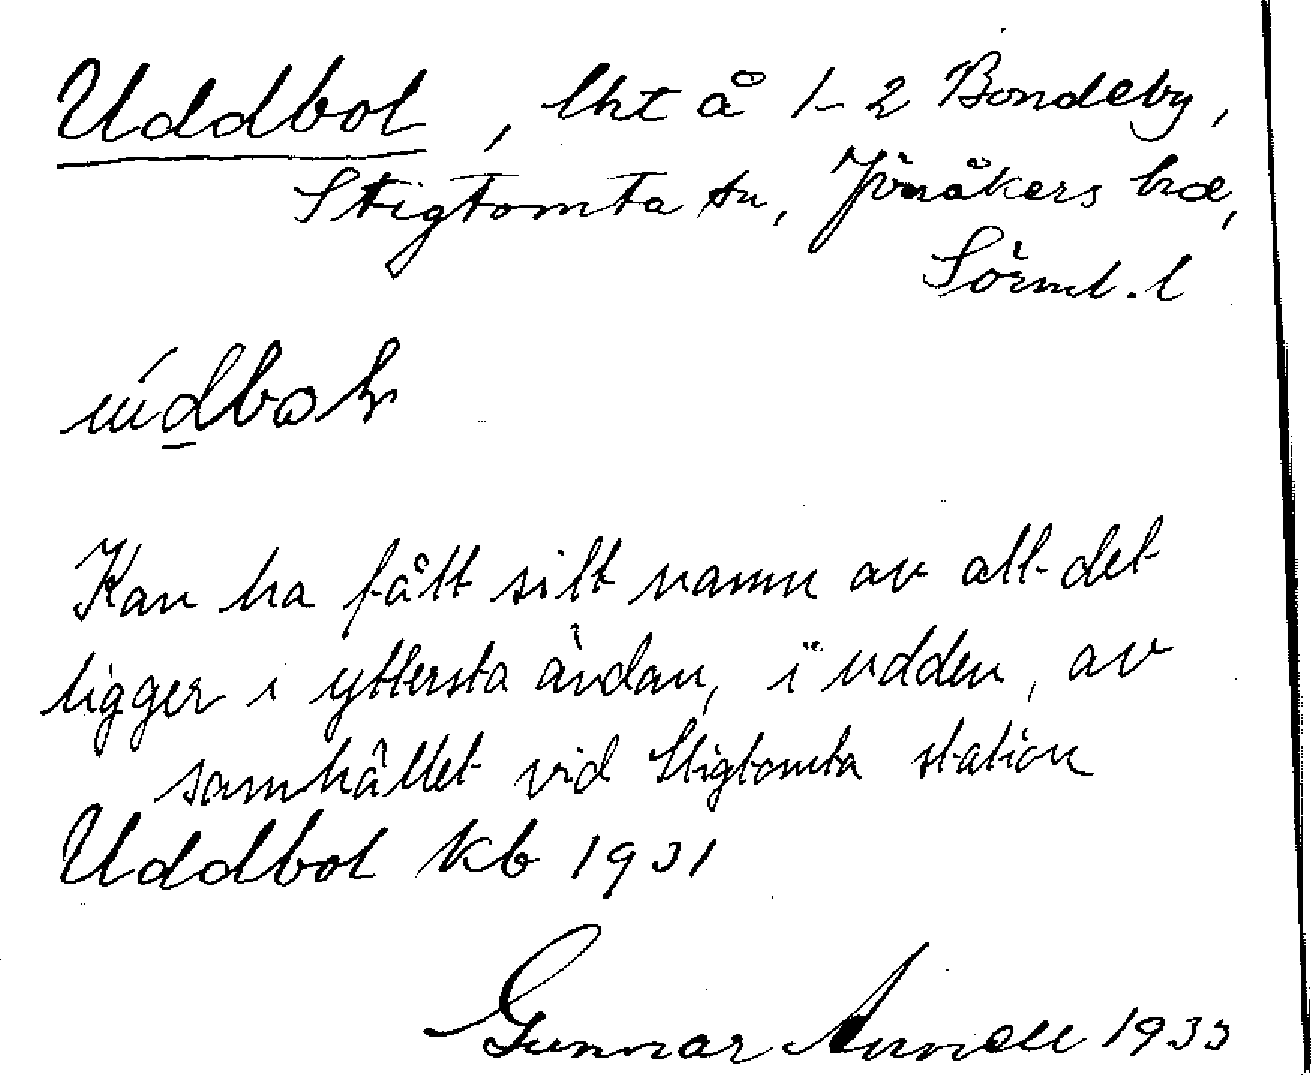 Uddbol, lht å 1-2 Bondeby,
Stigtomta sn, Jönåkers hd,
Sörml. l
Kan ha fått sitt namn av att det
ligger i yttersta ändan, i "udden, av
samhället vid Stigtomta station
Uddbol kb 1931
Gunnar 1933